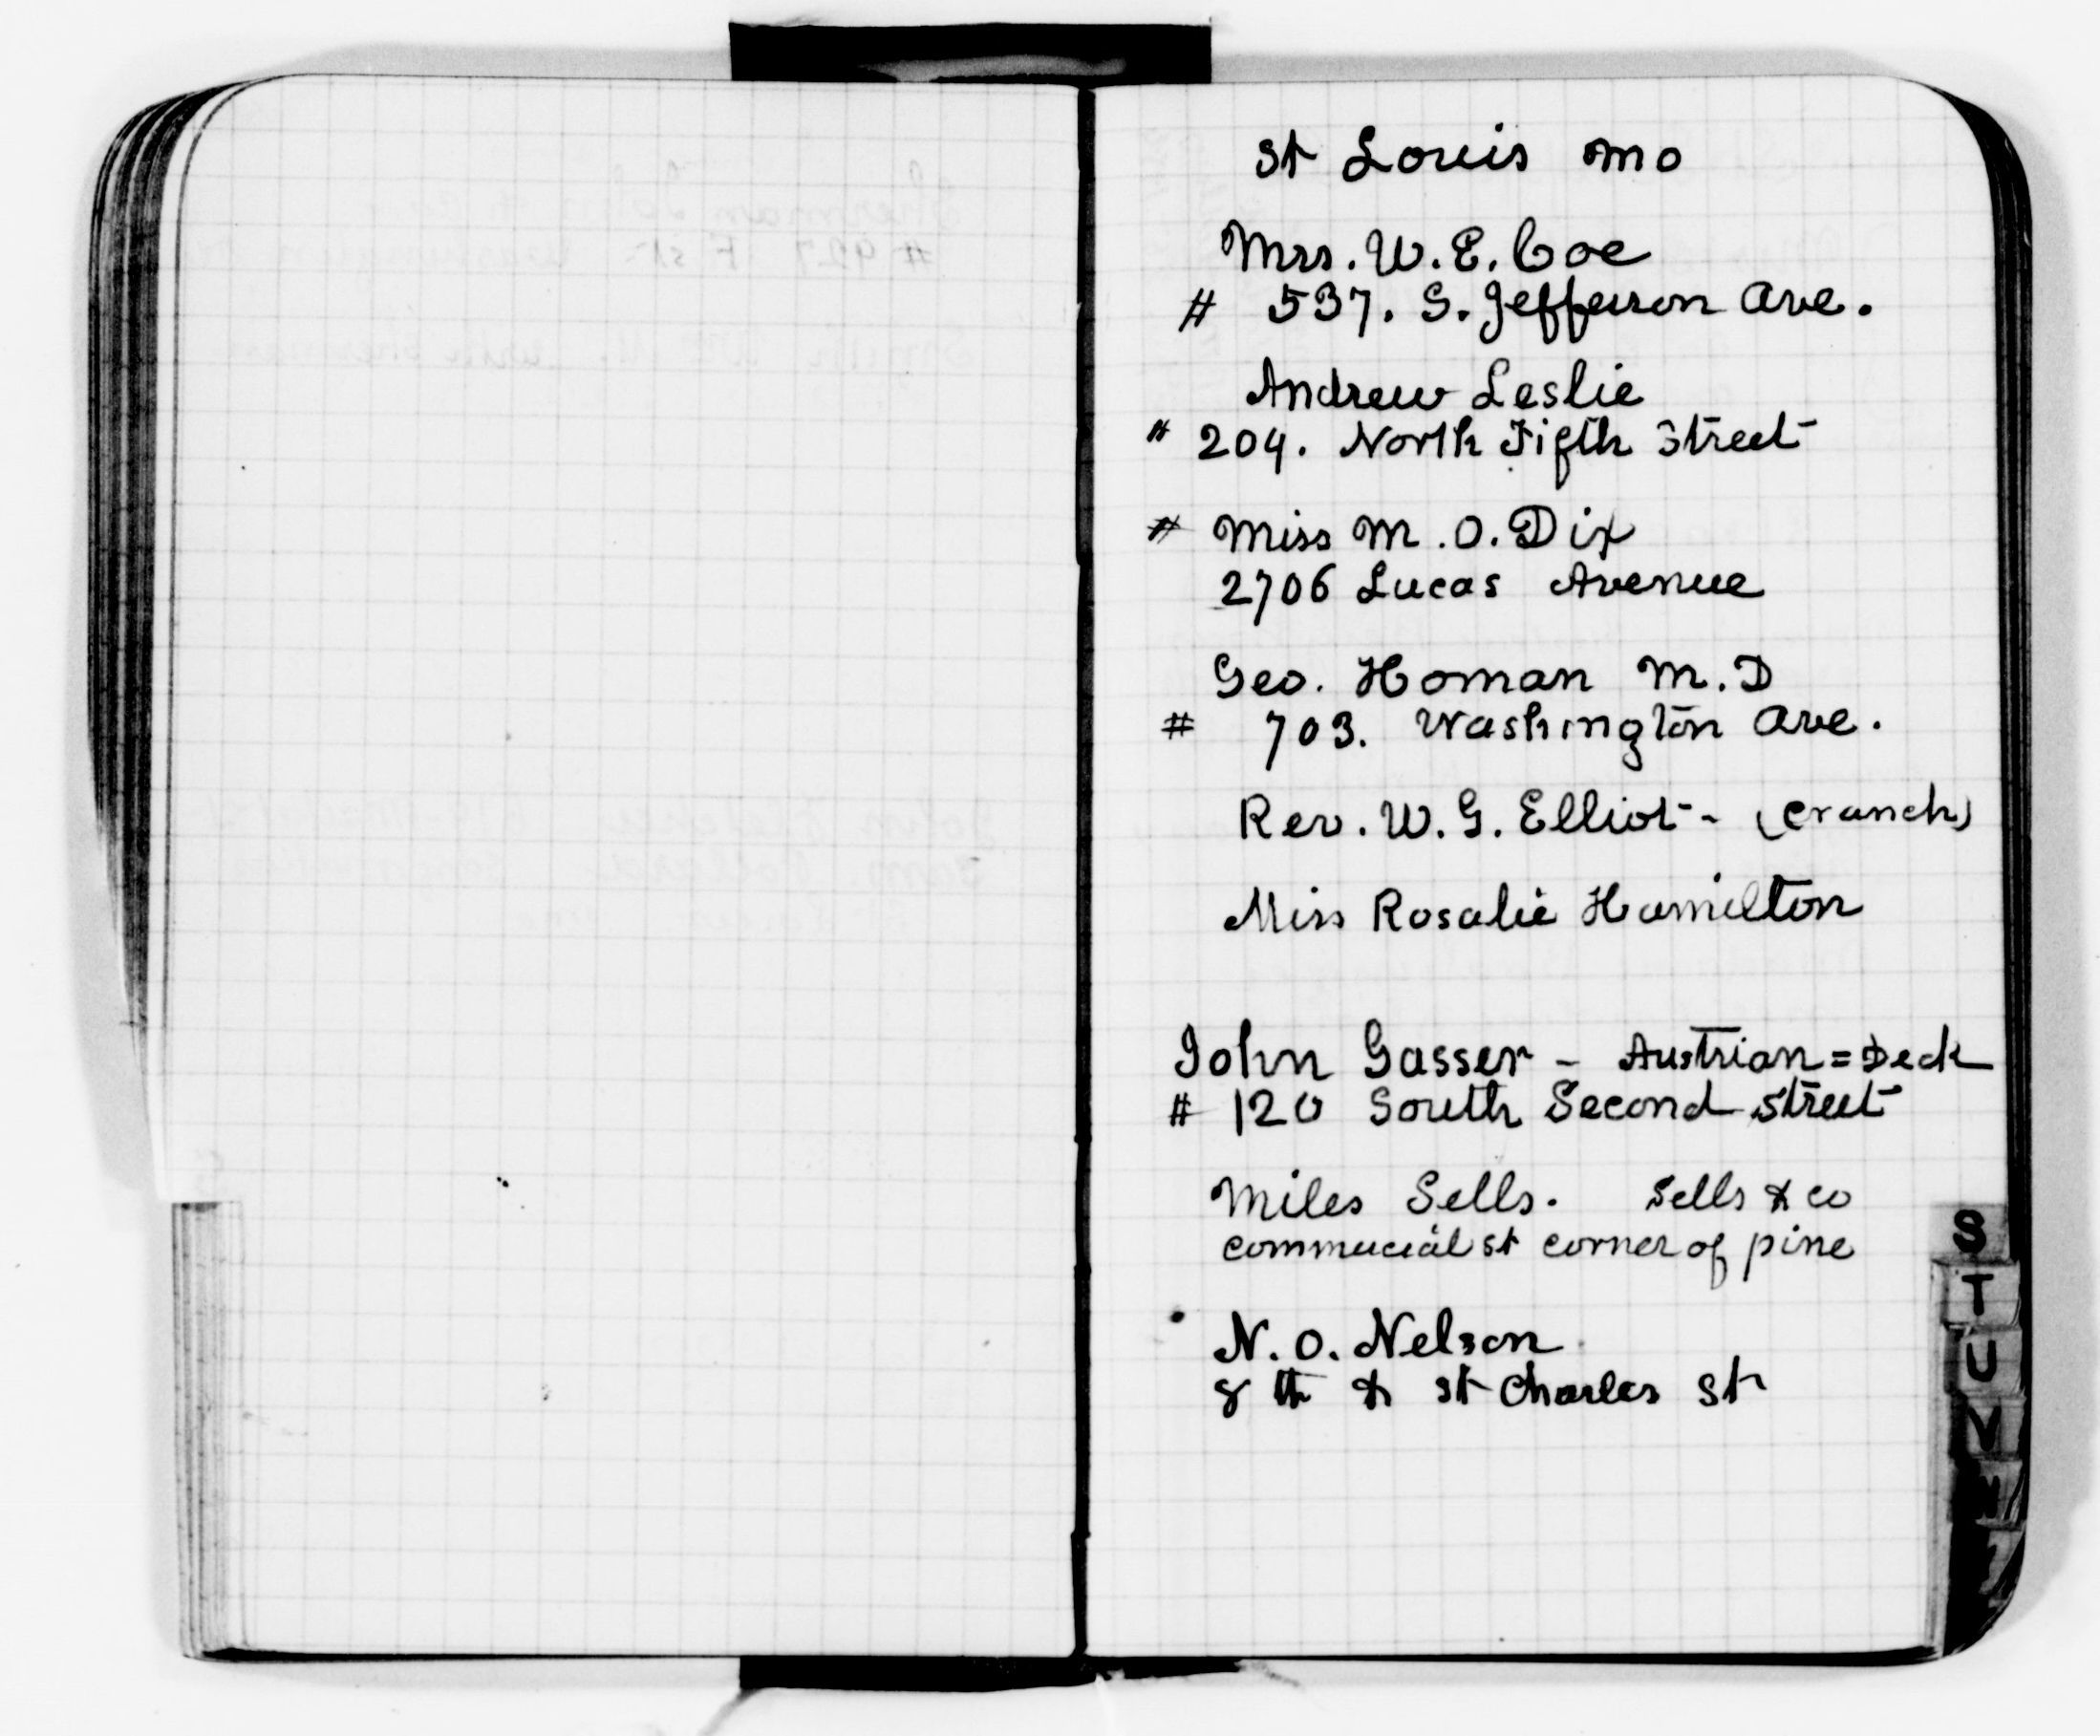 St Louis Mo
Mrs. W. E. Coe
# 537. S. Jefferson Ave.
Andrew Leslie
# 204. North Fifth Street
# Miss M. O. Dix
2706 Lucas Avenue
Geo. Homan M.D
# 703. Washington Ave.
Rev. W. G. Elliot - (Cranch)
Miss Rosalie Hamilton
John Gasser - Austrian = Deck
# 120 South Second Street
Miles Sells. Sells & co
commercial st corner of pine
N. O. Nelson
8th & St Charles St
S
T
U
V
W